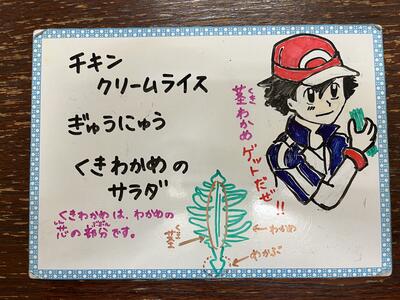 チキン
クリームライス
ぎゅうにゅう
くきわかめの
サラダ
くきわかめは、わかめの
芯の部分です。
しん
ぶぶん
茎わかめ
くき
ゲットだぜ!!
茎
くき
わかめ
めかぶ